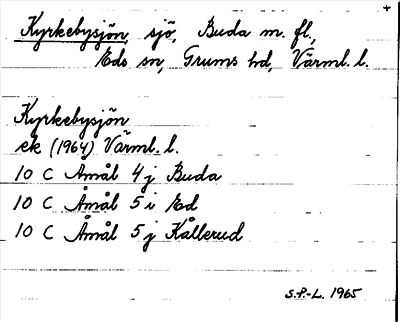 Kyrkebysjön, sjö, Buda m. fl.,
Eds sn, Grums hd, Värml. l.
Kyrkebysjön
ek (1964) Värml. l.
10 C Åmål 4 j Buda
10 C Åmål 5 i Ed
10 C Åmål 5 j Kållerud
S.P.-L. 1965